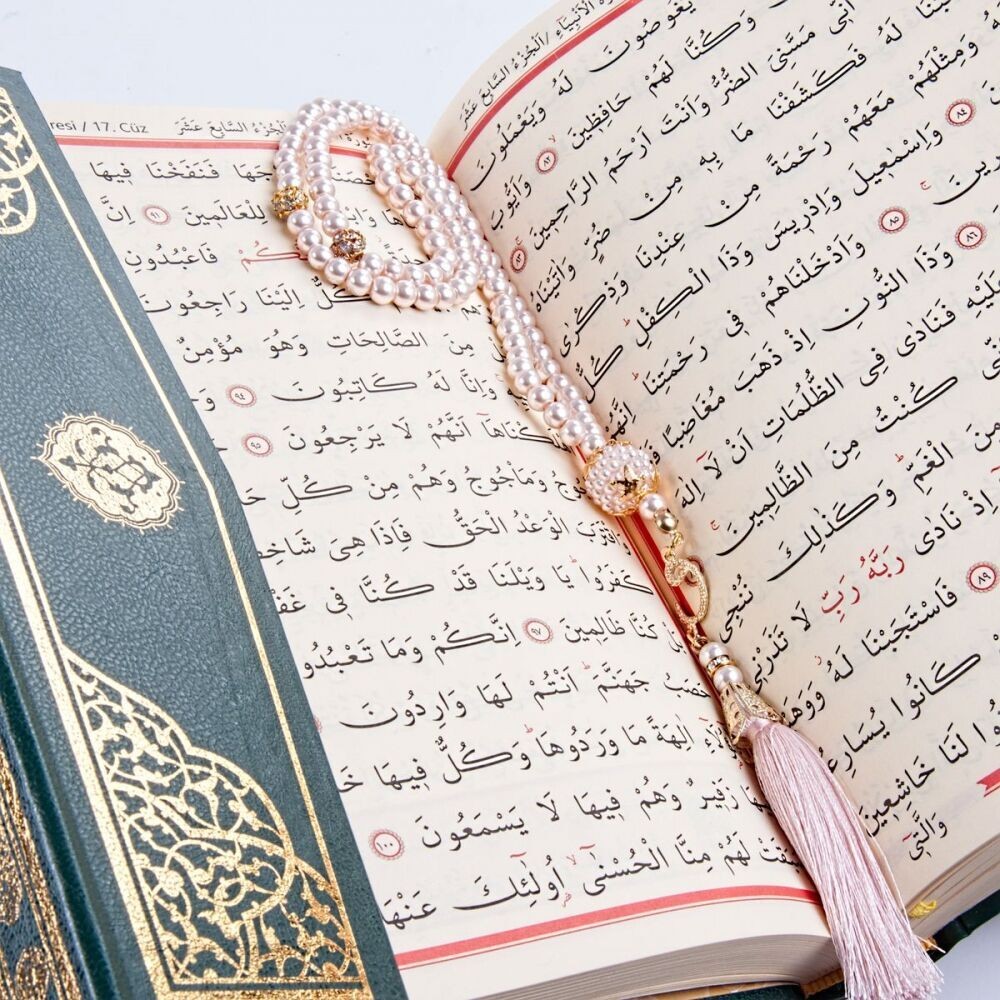 سُورَةُ الْاَنْبِيَاءِ / اَلْجُزْءُ السَّابِعَ عَشَرَ
يَغُوصُونَ لَهُ وَيَعْمَلُونَ
وَكُنَّا لَهُمْ حَافِظِينَ ٨٢ وَاَيُّوبَ
اَنِّى مَسَّنِىَ الضُّرُّ وَاَنْتَ اَرْحَمُ الرَّاحِمِينَ ٨٣
لَهُ فَكَشَفْنَا مَا بِهِ مِنْ ضُرٍّ وَاٰتَيْنَاهُ
وَمِثْلَهُمْ مَعَهُمْ رَحْمَةً مِنْ عِنْدِنَا وَذِكْرٰى
٨٤ وَاِسْمٰعِيلَ وَاِدْرِيسَ وَذَا الْكِفْلِ كُلٌّ
٨٥ وَاَدْخَلْنَاهُمْ فِى رَحْمَتِنَا اِنَّهُمْ
٨٦ وَذَا النُّونِ اِذْ ذَهَبَ مُغَاضِبًا
عَلَيْهِ فَنَادٰى فِى الظُّلُمَاتِ اَنْ لَٓا اِلٰهَ
كُنْتُ مِنَ الظَّالِمِينَ
مِنَ الْغَمِّ وَكَذٰلِكَ نُنْجِى
اِذْ نَادٰى رَبَّهُ رَبِّ لَا تَذَرْنِى
٨٩ فَاسْتَجَبْنَا لَهُ
كَانُوا يُسَارِعُونَ
لَنَا خَاشِعِينَ
وَالَّتِى
17. Cüz اَلْجُزْءُ السَّابِعَ عَشَرَ
فَنَفَخْنَا فِيهَا
لِلْعَالَمِينَ ٩١ اِنَّ
فَاعْبُدُونِ
كُلٌّ اِلَيْنَا رَاجِعُونَ
مِنَ الصَّالِحَاتِ وَهُوَ مُؤْمِنٌ
وَاِنَّا لَهُ كَاتِبُونَ ٩٤
اَنَّهُمْ لَا يَرْجِعُونَ ٩٥
وَمَأْجُوجُ وَهُمْ مِنْ كُلِّ
الْوَعْدُ الْحَقُّ فَاِذَا هِىَ
كَفَرُوا يَا وَيْلَنَا قَدْ كُنَّا فِى
كُنَّا ظَالِمِينَ ٩٧ اِنَّكُمْ وَمَا
جَهَنَّمَ اَنْتُمْ لَهَا وَارِدُونَ
اٰلِهَةً مَا وَرَدُوهَا وَكُلٌّ فِيهَا
زَفِيرٌ وَهُمْ فِيهَا لَا يَسْمَعُونَ ١٠٠
لَهُمْ مِنَّا الْحُسْنٰٓى اُو۬لٰٓئِكَ عَنْهَا